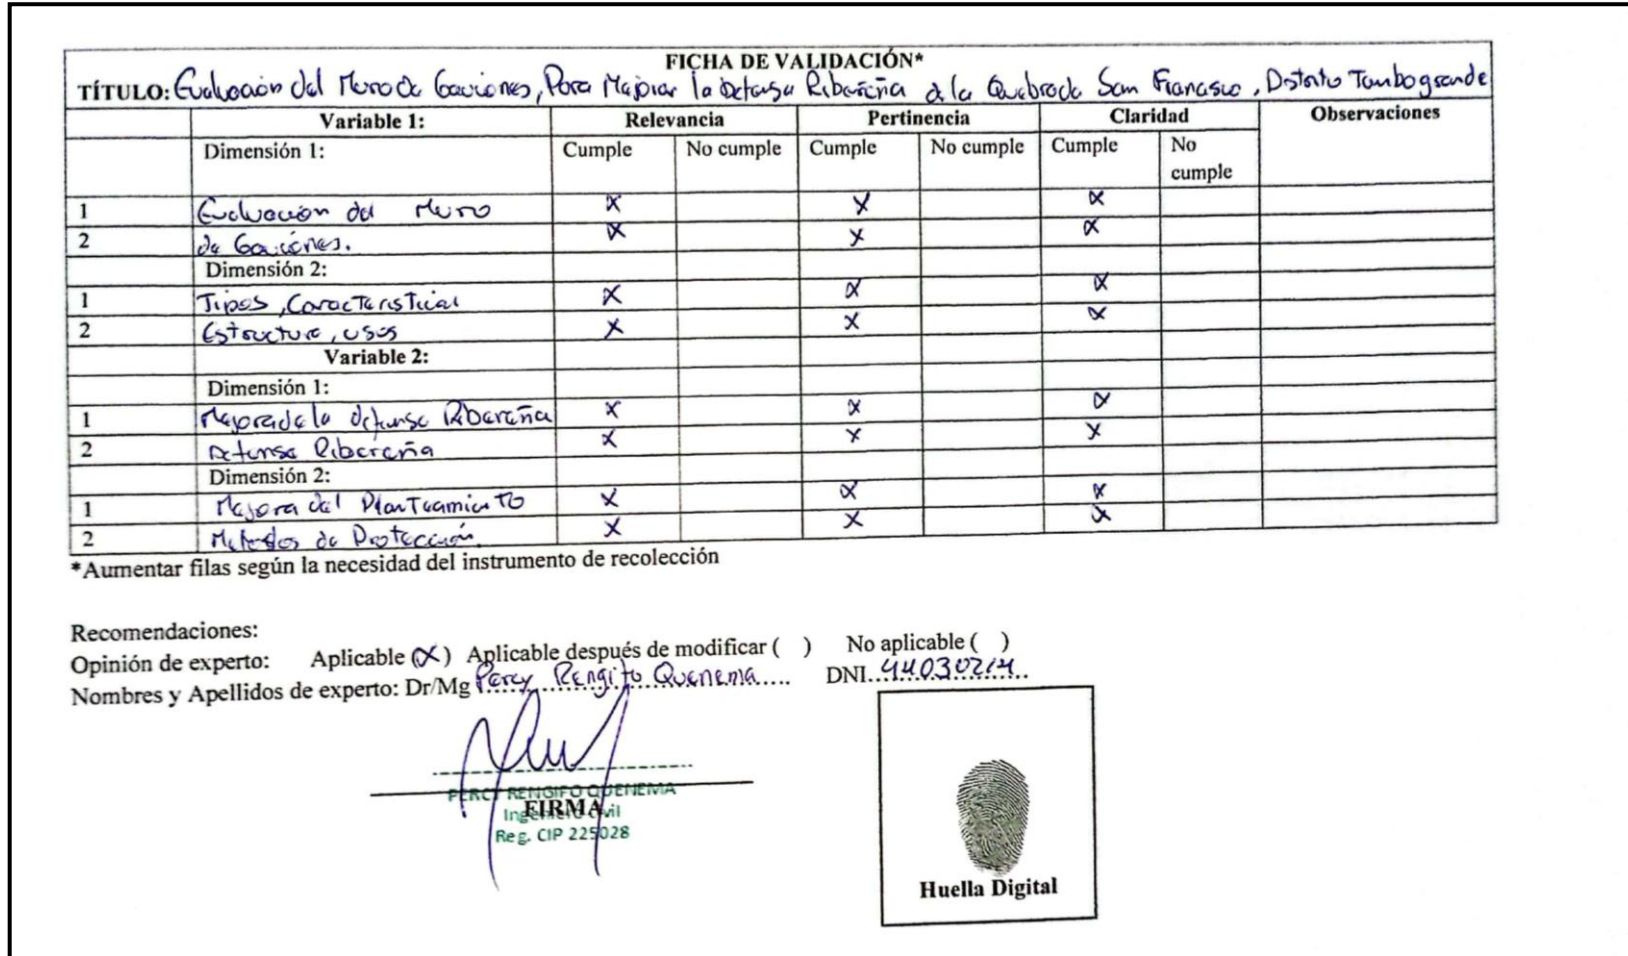 FICHA DE VALIDACIÓN*
TÍTULO: Evaluación del Muro de Gaviones, Para Mejorar la Defensa Ribereña de la Quebrada San Francisco, Distrito Tambogrande
Variable 1: Relevancia Pertinencia Claridad Observaciones
Dimensión 1: Cumple No cumple Cumple No cumple Cumple No cumple
1 Evaluación del Muro X X X
2 de Gaviones. X X X
Dimensión 2:
1 Tipos, Caracteristicas X X X
2 Estructura, usos X X X
Variable 2:
Dimensión 1:
1 Mejora de la defensa Ribereña X X X
2 Defensa Ribereña X X X
Dimensión 2:
1 Mejora del Planteamiento X X X
2 Metodos de Protección. X X X
*Aumentar filas según la necesidad del instrumento de recolección
Recomendaciones:
Opinión de experto: Aplicable (X) Aplicable después de modificar ( ) No aplicable ( )
Nombres y Apellidos de experto: Dr/Mg Percy Rengifo Quenema..... DNI..
PERCY RENGIFO QUENEMA
FIRMA
Ingeniero Civil
Reg. CIP 225028
Huella Digital